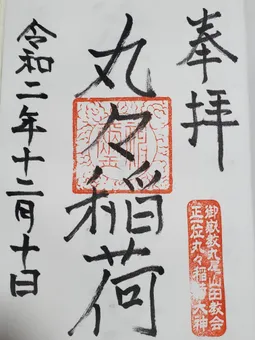 奉拝
御嶽教丸尾山田教会
正一位丸々稲荷大神
丸々稲荷
令和二年十二月十日